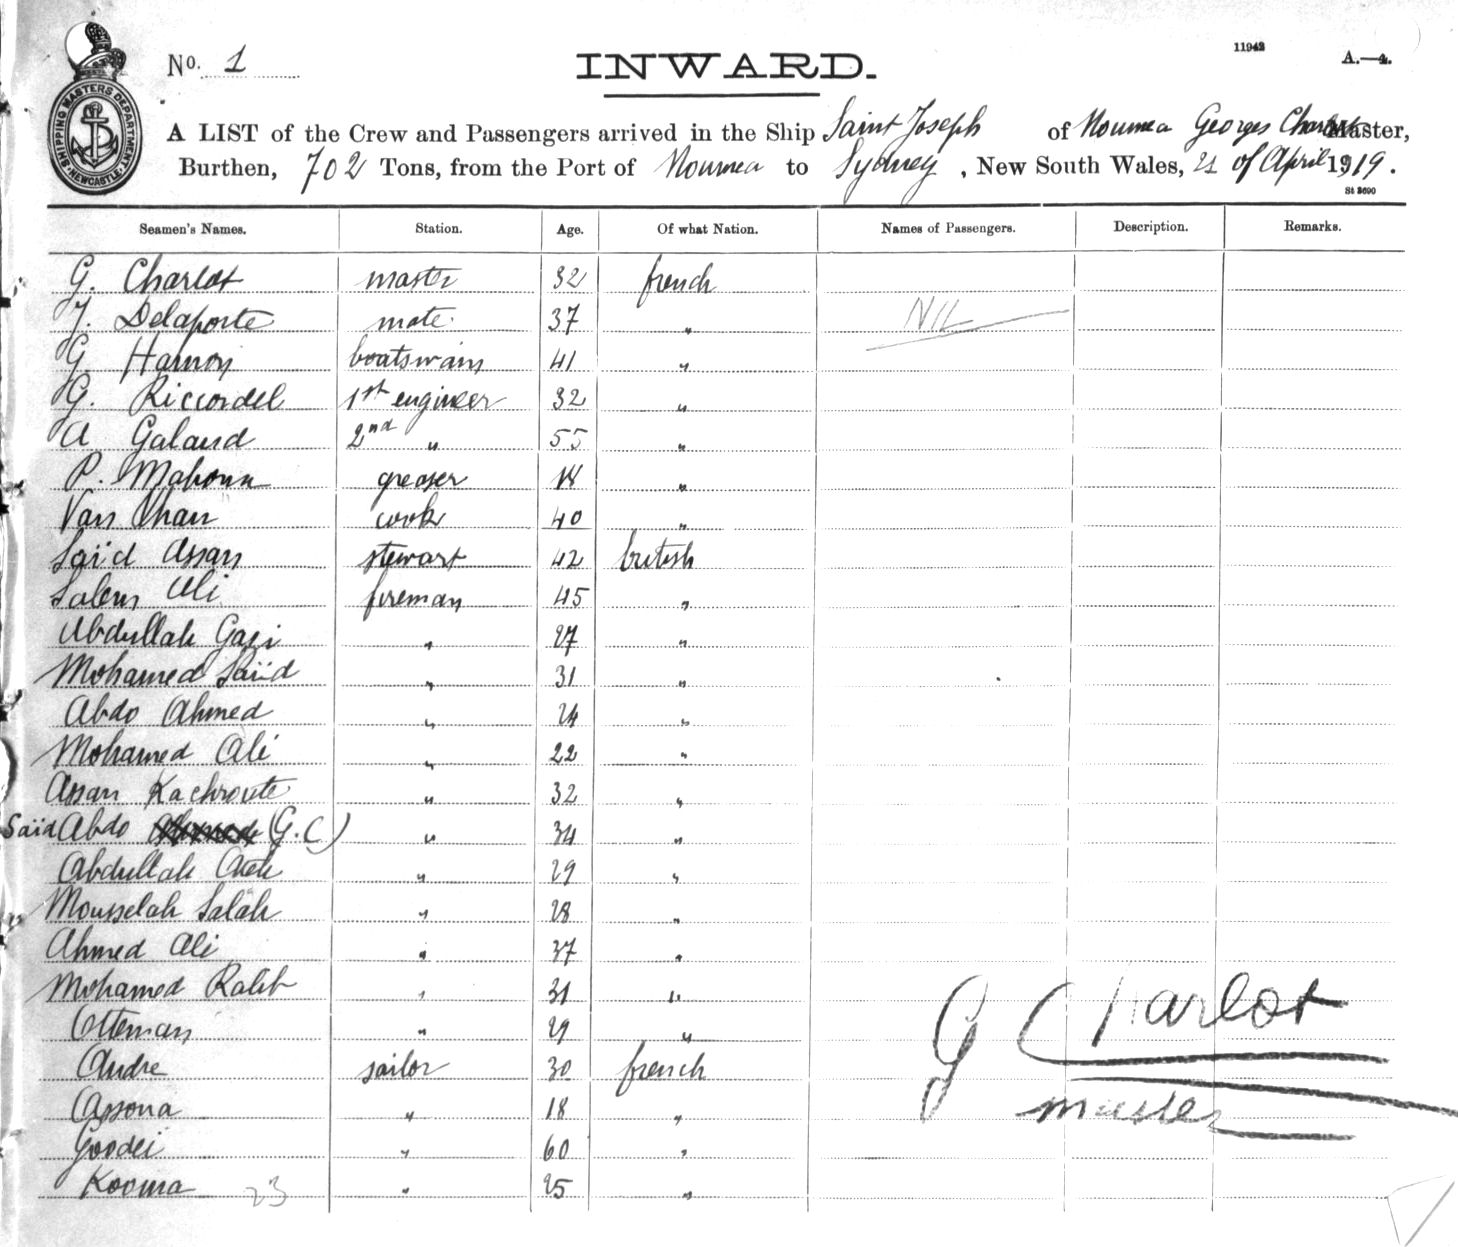 SHIPPING MASTERS DEPARTMENT NEWCASTLE
No. 1
INWARD.
11942
A.—4.
A LIST of the Crew and Passengers arrived in the Ship Saint Joseph of Noumea Georges Charlot Master,
Burthen, 702 Tons, from the Port of Noumea to Sydney, New South Wales, 21 of April 1919.
St 3690
Seamen's Names. Station. Age. Of what Nation. Names of Passengers. Description. Remarks.
G. Charlot master 32 french
J. Delaporte mate 37 " NIL
G. Hamon boatswain 41 "
G. Riccordel 1st engineer 32 "
A Galand 2nd " 55 "
P. Mahoua greaser 18 "
Van Chan cook 40 "
Saïd Assan stewart 42 british
Salem Ali fireman 45 "
Abdullah Gasi " 27 "
Mohamed Saïd " 31 "
Abdo Ahmed " 24 "
Mohamed Ali " 22 "
Assan Kachroute " 32 "
Saïd Abdo (G.C) " 34 "
Abdullah " 29 "
Mousselah Salah " 28 "
Ahmed Ali " 37 "
Mohamed Raleb " 31 "
Otteman " 29 "
Andre sailor 30 french
Assona " 18 "
Goodei " 60 "
Kooma " 25 "
23
G Charlot
master